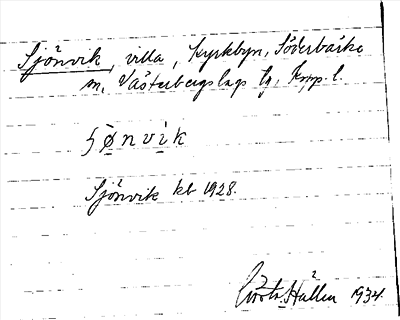 Sjönvik, villa, Kyrkbyn, Söderbärke
sn, Västerbergslags tg, Kmp. l.
ʃø̀nvik
Sjönvik kb 1928.
Gösta Hallen 1934.